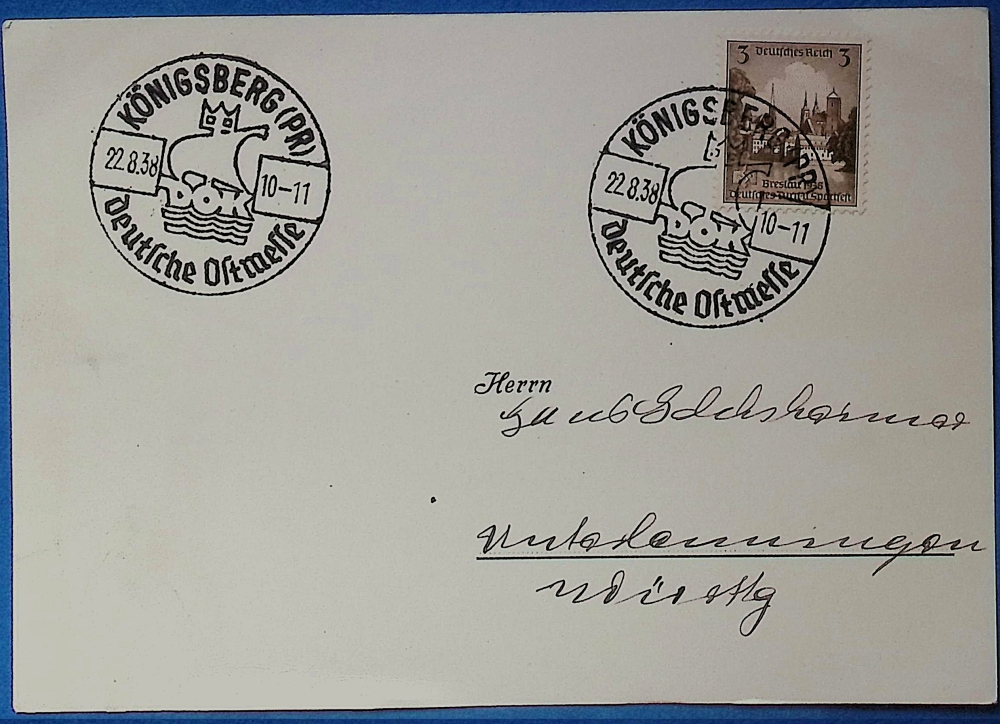 KÖNIGSBERG (PR)
22.8.38
10-11
DOK
Deutsche Ostmesse
3 Deutsches Reich 3
Breslau 1938
Deutsches Turn u. Sportfest
KÖNIGSBERG (PR)
22.8.38
10-11
DOK
Deutsche Ostmesse
Herrn
Hans
Württbg